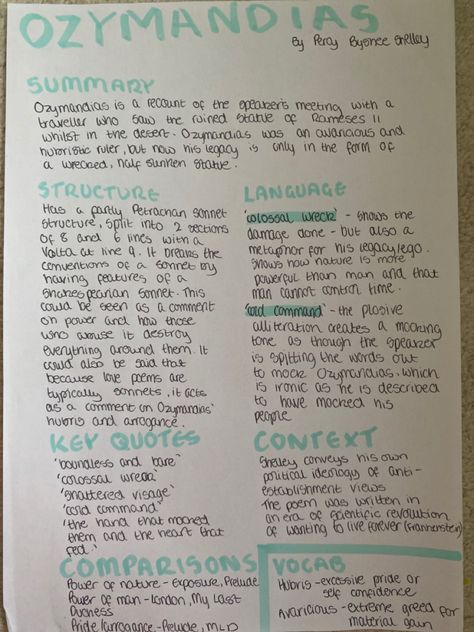 OZYMANDIAS
By Percy Bysshee Shelley
SUMMARY
Ozymandias is a recount of the speaker's meeting with a
traveller who saw the ruined statue of Rameses II
whilst in the desert. Ozymandias was an avaricious and
hubristic ruler, but now his legacy is only in the form of
a wrecked, half sunken statue.
STRUCTURE
Has a partly Petrachan sonnet
structure, split into 2 sections
of 8 and 6 lines with a
Volta at line 9. It breaks the
conventions of a sonnet by
having features of a
Shakespearian sonnet. This
could be seen as a comment
on power and how those
who abuse it destroy
everything around them. It
could also be said that
because love poems are
typically sonnets, it acts
as a comment on Ozymandias'
hubris and arrogance.
LANGUAGE
'colossal wreck' - shows the
damage done - but also a
metaphor for his legacy/ego.
Shows how nature is more
powerful than man and that
man cannot control time.
'cold command' - the plosive
alliteration creates a mocking
tone as though the speaker
is spitting the words out
to mock Ozymandias. which
is ironic as he is described
to have mocked his
people
KEY QUOTES
'boundless and bare'
'colossal wreck'
'shattered visage'
'cold command'
'the hand that mocked
them and the heart that
fed.'
CONTEXT
Shelley conveys his own
political ideology of anti-
establishment views
The poem was written in
an era of scientific revolution
of wanting to live forever (Frankenstein)
COMPARISONS
Power of nature - Exposure, Prelude
Power of man - London, My Last
Duchess
Pride/arrogance - Prelude, MLD
VOCAB
Hubris - excessive pride or
self confidence
Avaricious - extreme greed for
material gain